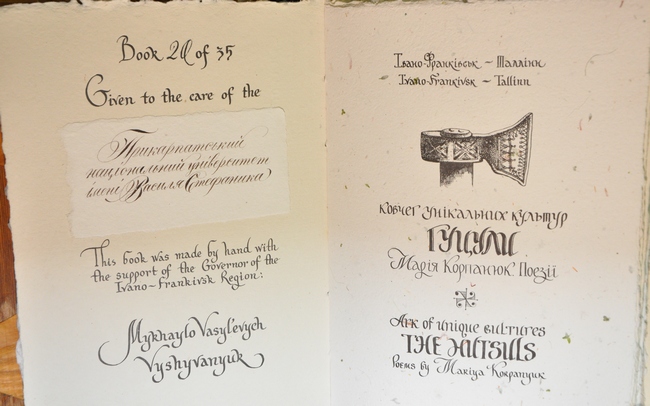 Book 20 of 35
Given to the care of the
Прикарпатський
національний університет
імені Василя Стефаника
This book was made by hand with
the support of the Governor of the
Ivano-Frankivsk Region:
Mykhaylo Vasyl'evych
Vyshyvanyuk
Івано-Франківськ – Таллінн
Ivano-Frankivsk – Tallinn
ковчег унікальних культур
ГУЦУЛИ
Марія Корпанюк Поезії
Ark of unique cultures
THE HUTSULS
Poems by Mariya Korpanyuk